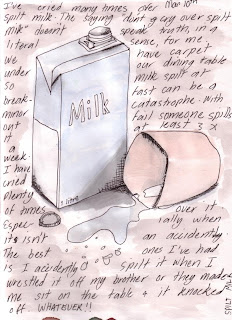 I've cried many times over Mar 10th
spilt milk. The saying "dont cry over spilt
milk" doesn't speak truth, in a
literal sense, for me.
we have carpet
under our dining table
so milk spilt at
break- fast can be a
minor catastrophe. With
out fail someone spills
it at least 3 x
a
week.
I have
cried
plenty
of times over it
Espec- ially when
its isn't an accidently.
The best ones I've had
is I accidently spilt it when I
wrestled it off my brother or they made
me sit on the table & it knocked
off. WHATEVER!!
Milk
1 litre
SPILT MILK